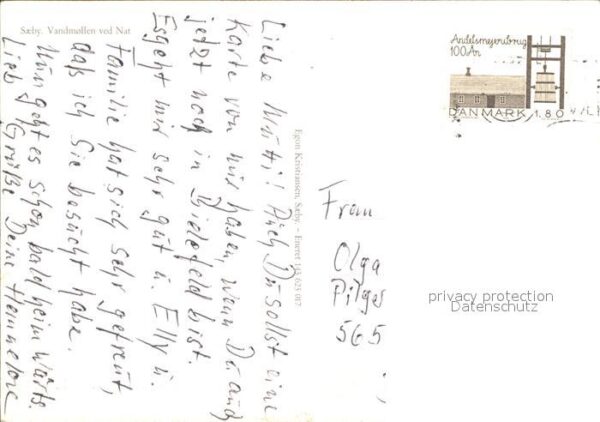 Sæby. Vandmøllen ved Nat
Liebe Mutti! Auch Du sollst eine
Karte von mir haben, wenn Du auch
jetzt noch in Bielefeld bist.
Es geht mir sehr gut u. Elly u.
Familie hat sich sehr gefreut,
daß ich Sie besucht habe.
Nun geht es schon bald heimwärts.
Liebe Grüße Deine Hannelore
Egon Kristiansen, Sæby. - Eneret 143 625 007
Andelsmejeribrug
100 År
DANMARK 1.80
Frau
Olga
Pilger
565
privacy protection
Datenschutz